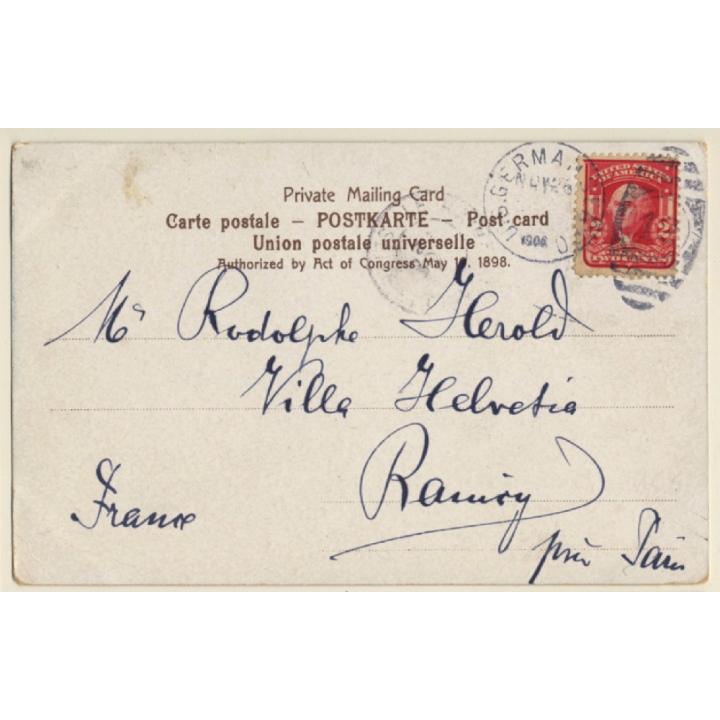 Private Mailing Card
Carte postale – POSTKARTE – Post card
Union postale universelle
Authorized by Act of Congress May 19, 1898.
GERMAN
NOV 26
1906
UNITED STATES
OF AMERICA
2 2
Mr Rodolphe Herold
Villa Helvetia
Raincy
près Paris
France